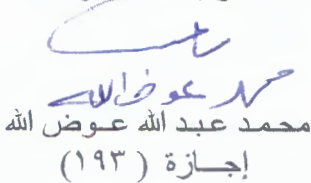 محمد عوض الله
محمد عبد الله عوض الله
إجازة ( ١٩٣ )